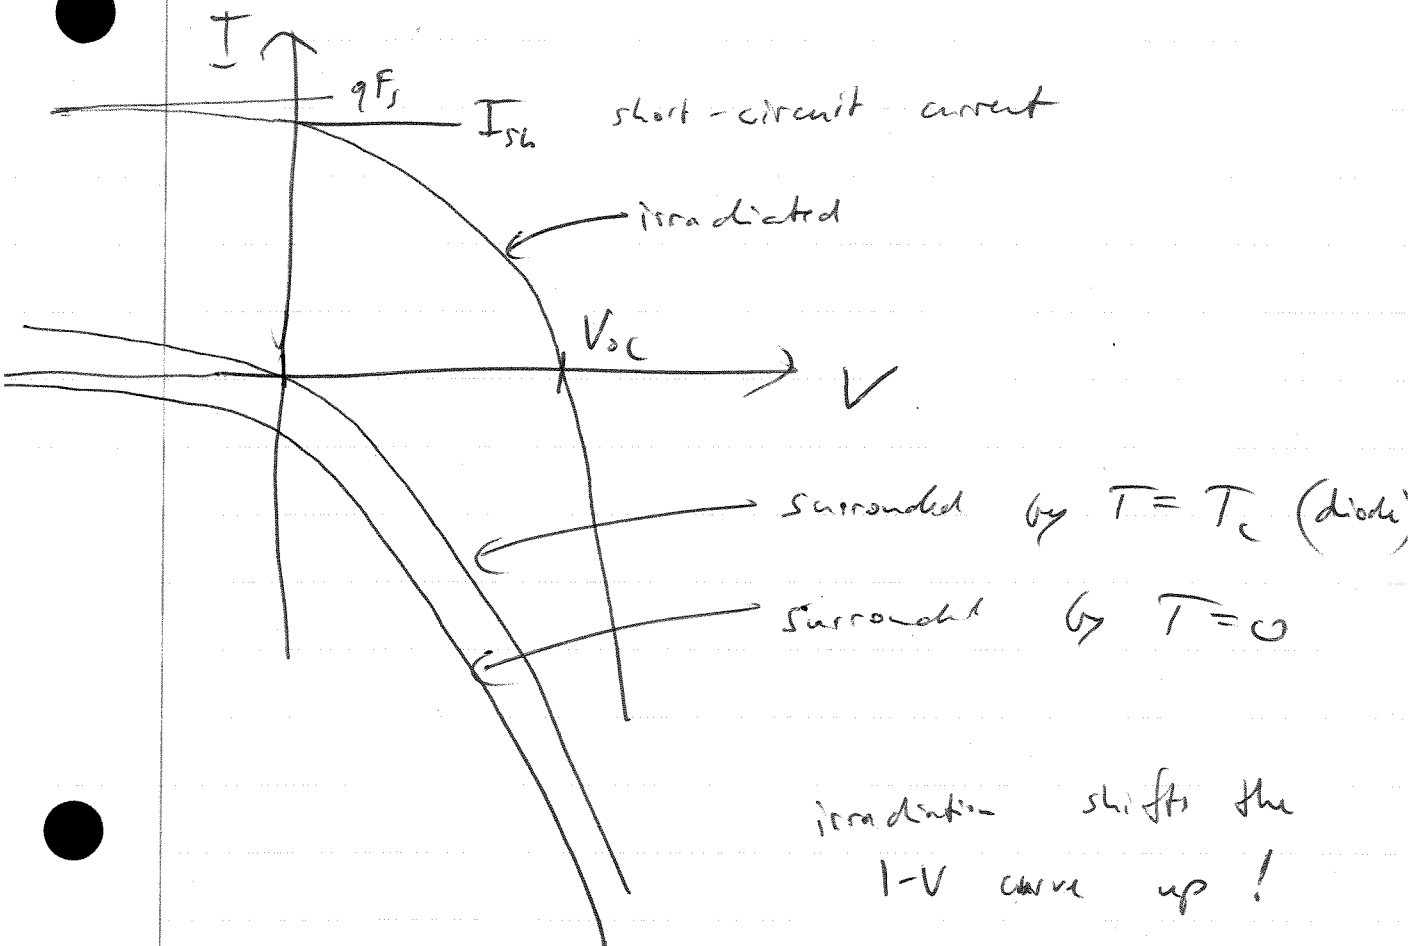 I
qFs
Ish short-circuit current
irradiated
Voc
V
surrounded by T = Tc (diode)
surrounded by T=0
irradiation shifts the
I-V curve up!